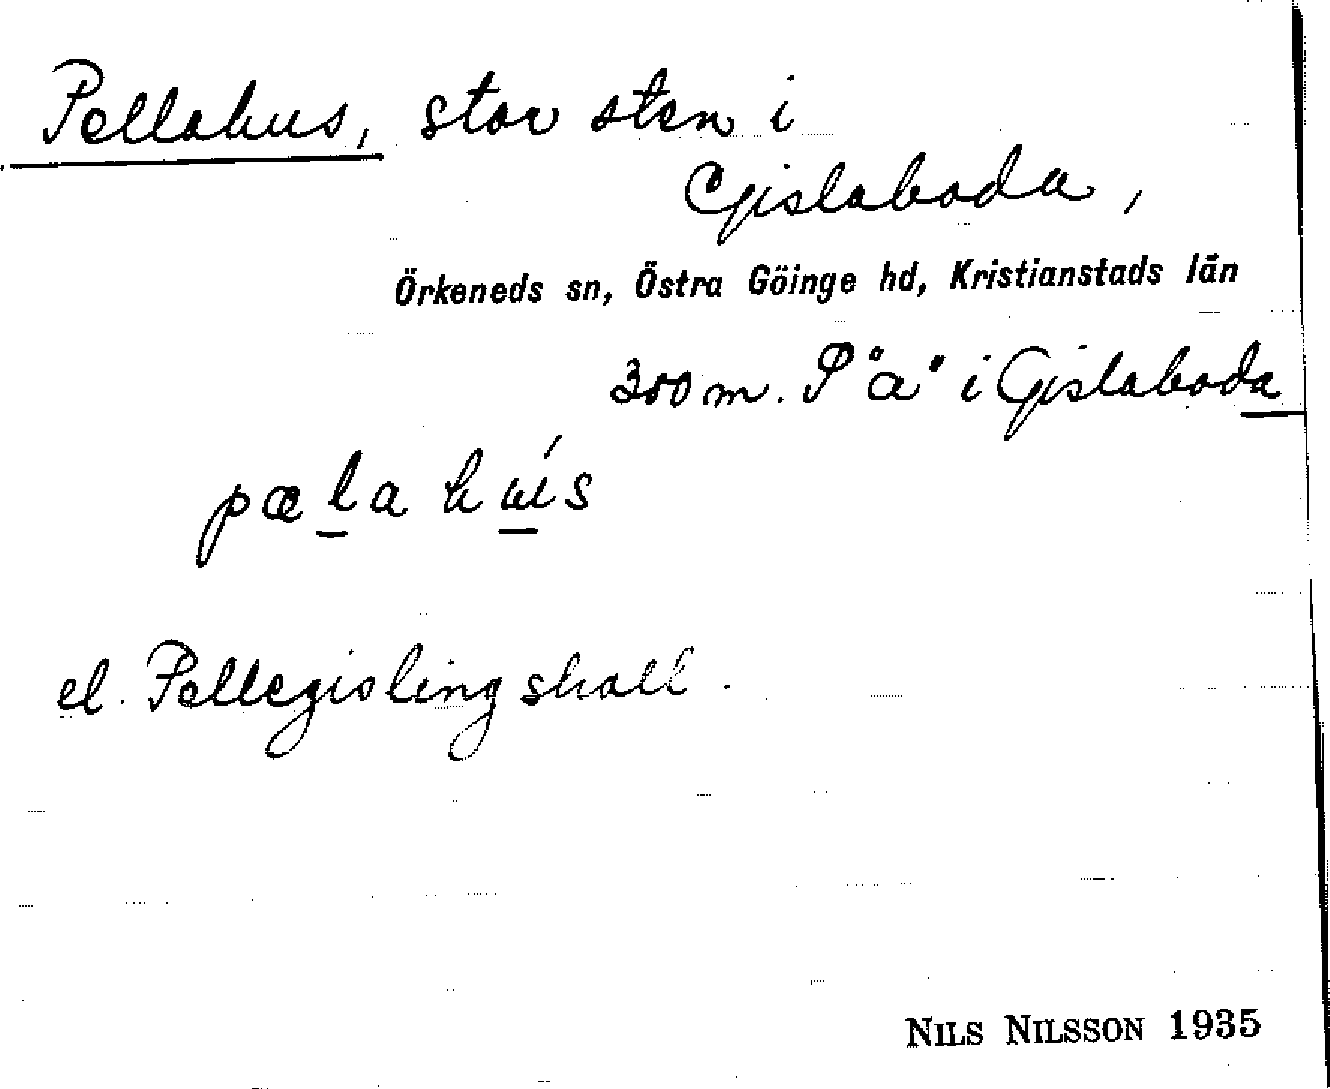 Pellahus, stor sten i
Gislaboda,
Örkeneds sn, Östra Göinge hd, Kristianstads län
300 m. S "a" i Gislaboda
pœla hús
el. Pellegislingshall.
NILS NILSSON 1935